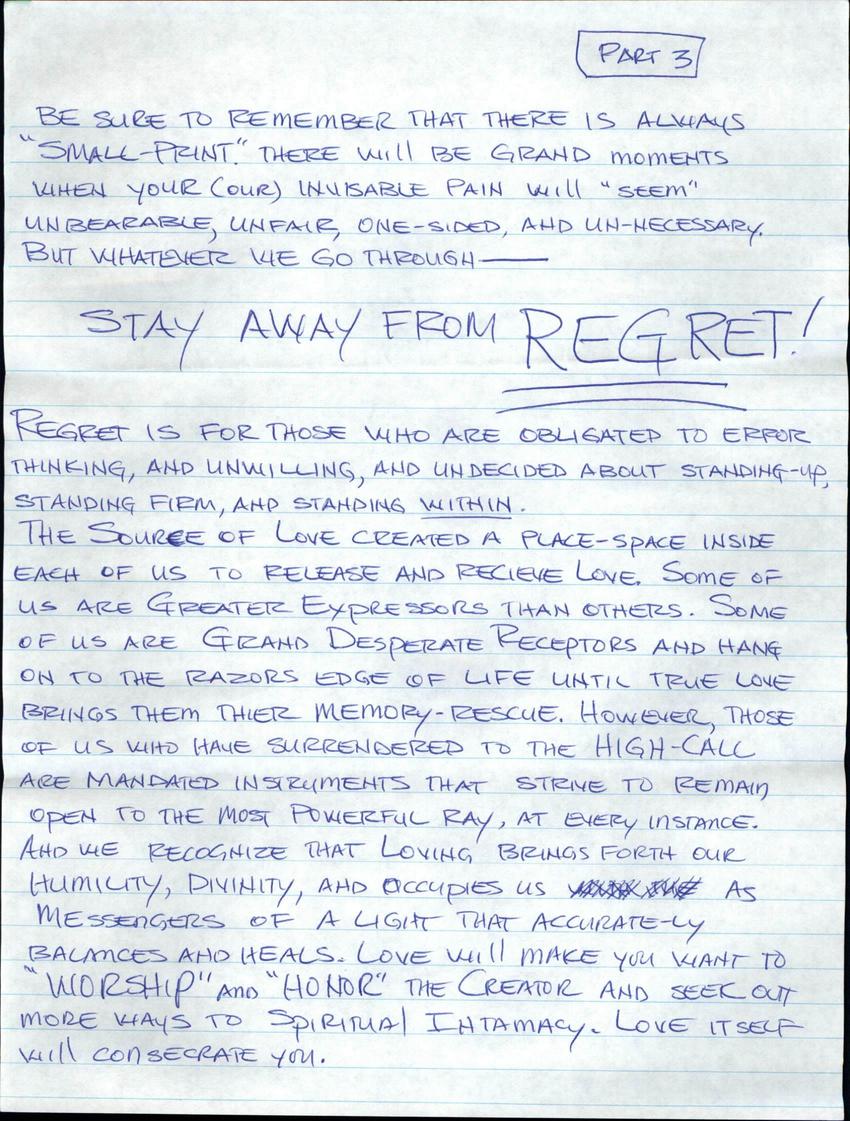 PART 3
BE SURE TO REMEMBER THAT THERE IS ALWAYS
"SMALL-PRINT." THERE WILL BE GRAND MOMENTS
WHEN YOUR (OUR) INVISABLE PAIN WILL "SEEM"
UNBEARABLE, UNFAIR, ONE-SIDED, AND UN-NECESSARY.
BUT WHATEVER WE GO THROUGH——
STAY AWAY FROM REGRET!
REGRET IS FOR THOSE WHO ARE OBLIGATED TO ERROR
THINKING, AND UNWILLING, AND UNDECIDED ABOUT STANDING-UP,
STANDING FIRM, AND STANDING WITHIN.
THE SOURCE OF LOVE CREATED A PLACE-SPACE INSIDE
EACH OF US TO RELEASE AND RECIEVE LOVE. SOME OF
US ARE GREATER EXPRESSORS THAN OTHERS. SOME
OF US ARE GRAND DESPERATE RECEPTORS AND HANG
ON TO THE RAZORS EDGE OF LIFE UNTIL TRUE LOVE
BRINGS THEM THIER MEMORY-RESCUE. HOWEVER, THOSE
OF US WHO HAVE SURRENDERED TO THE HIGH-CALL
ARE MANDATED INSTRUMENTS THAT STRIVE TO REMAIN
OPEN TO THE MOST POWERFUL RAY, AT EVERY INSTANCE.
AND WE RECOGNIZE THAT LOVING BRINGS FORTH OUR
HUMILITY, DIVINITY, AND OCCUPIES US AS
MESSENGERS OF A LIGHT THAT ACCURATE-LY
BALANCES AND HEALS. LOVE WILL MAKE YOU WANT TO
"WORSHIP" AND "HONOR" THE CREATOR AND SEEK OUT
MORE WAYS TO SPIRITUAL INTAMACY. LOVE ITSELF
WILL CONSECRATE YOU.